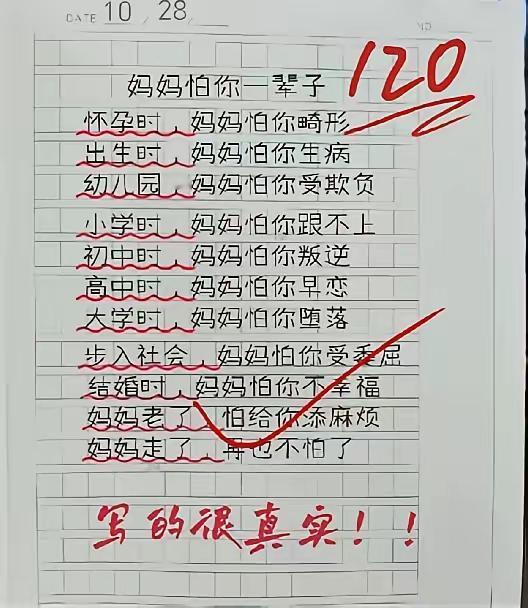 DATE 10 / 28 / NO
120
妈妈怕你一辈子
怀孕时，妈妈怕你畸形
出生时，妈妈怕你生病
幼儿园，妈妈怕你受欺负
小学时，妈妈怕你跟不上
初中时，妈妈怕你叛逆
高中时，妈妈怕你早恋
大学时，妈妈怕你堕落
步入社会，妈妈怕你受委屈
结婚时，妈妈怕你不幸福
妈妈老了，怕给你添麻烦
妈妈走了，再也不怕了
写的很真实！！